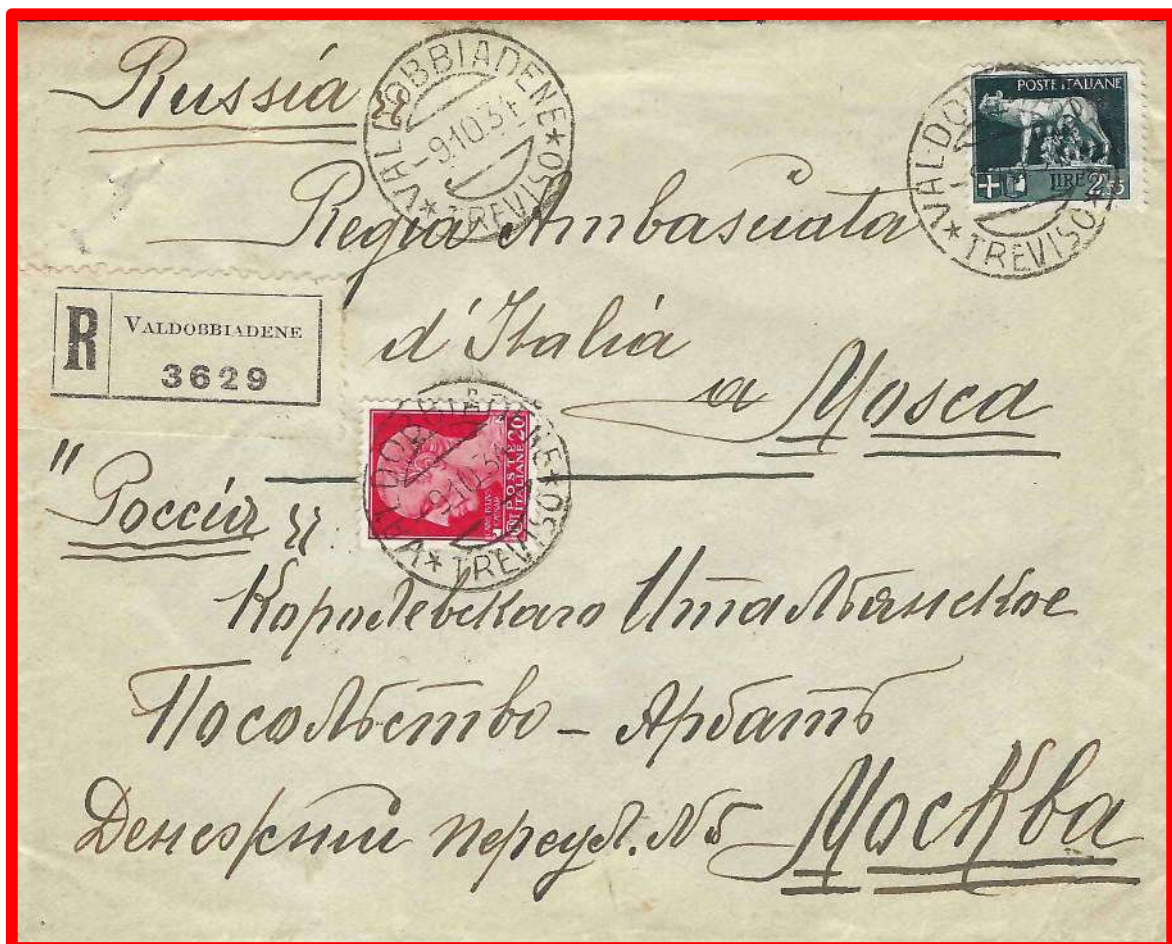 Russia
VALDOBBIADENE
-9.10.34
*TREVISO*
POSTE ITALIANE
LIRE 2,55
VALDO
*TREVISO*
Regia Ambasciata
d'Italia
a Mosca
R VALDOBBIADENE
3629
20
POSTE
ITALIANE
-9.10.34
*TREVISO*
"Россія"
Королевскаго Итальянское
Посольство - Арбатъ
Денежный переул. № 5 Москва